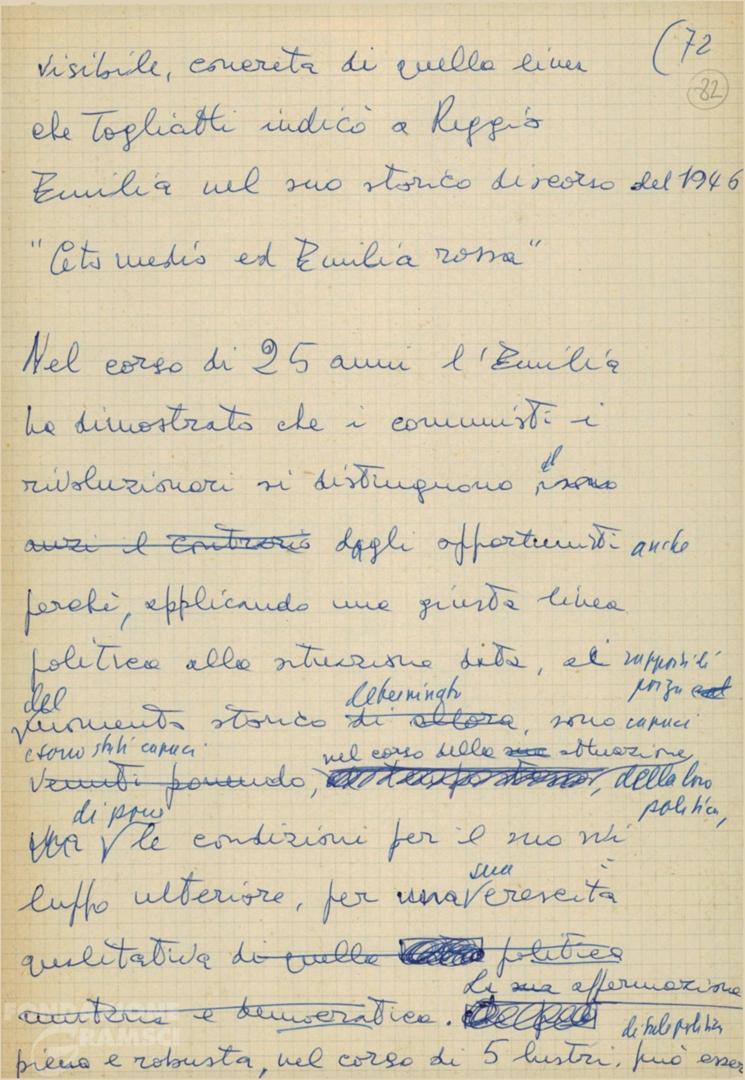 (72
82
visibile, concreta di quella linea
che Togliatti indicò a Reggio
Emilia nel suo storico discorso del 1946
"Ceto medio ed Emilia rossa"
Nel corso di 25 anni l'Emilia
ha dimostrato che i comunisti i
rivoluzionari si distinguono
anzi il contrario dagli opportunisti anche
perché, applicando una giusta linea
politica alla situazione data, ai rapporti di
forza
del momento storico di allora, sono capaci
determinato
e sono stati capaci
venuti ponendo, nel corso della attuazione
della loro politica,
di porre le condizioni per il suo svi
luppo ulteriore, per una sua crescita
qualitativa di quella politica
la sua affermazione
unitaria e democratica.
di tale politica
piena e robusta, nel corso di 5 lustri, può esser
FONDAZIONE
GRAMSCI